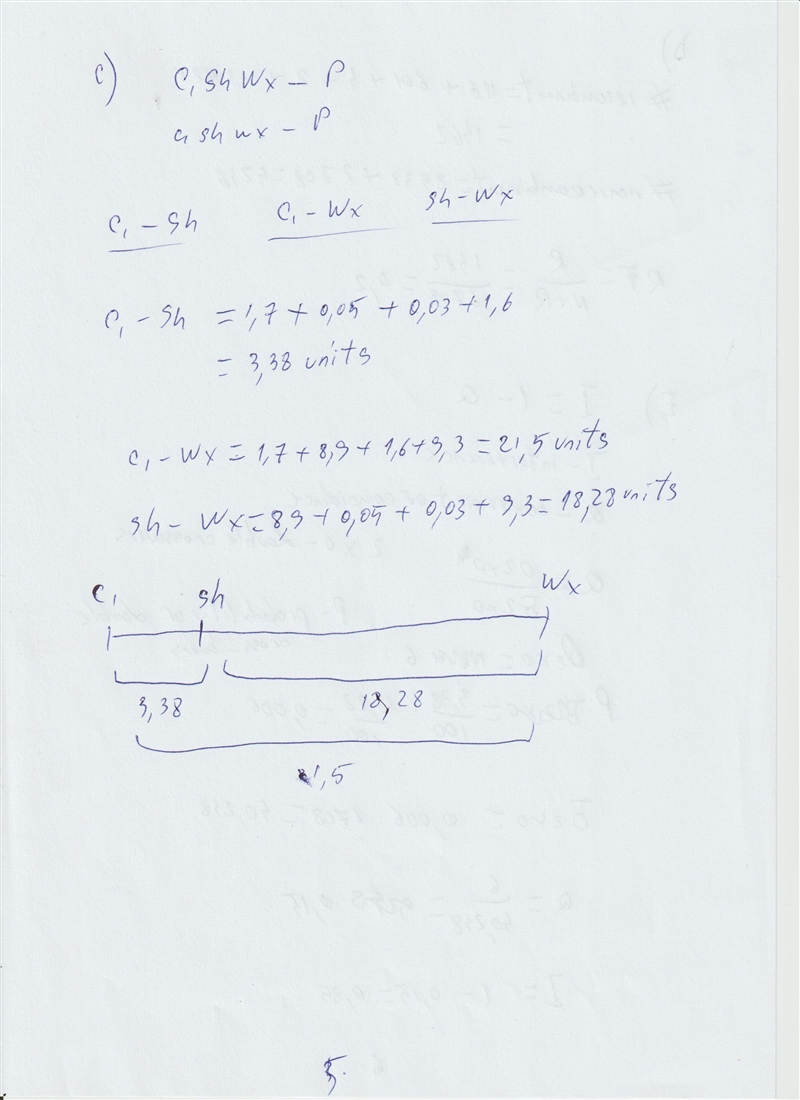 c)
C₁ Sh Wx – P
c₁ sh wx – P
C₁ – Sh C₁ – Wx Sh – Wx
C₁ – Sh = 1,7 + 0,05 + 0,03 + 1,6
= 3,38 units
C₁ – Wx = 1,7 + 8,9 + 1,6 + 9,3 = 21,5 units
Sh – Wx = 8,9 + 0,05 + 0,03 + 9,3 = 18,28 units
C₁ Sh Wx
3,38 18,28
21,5
5.